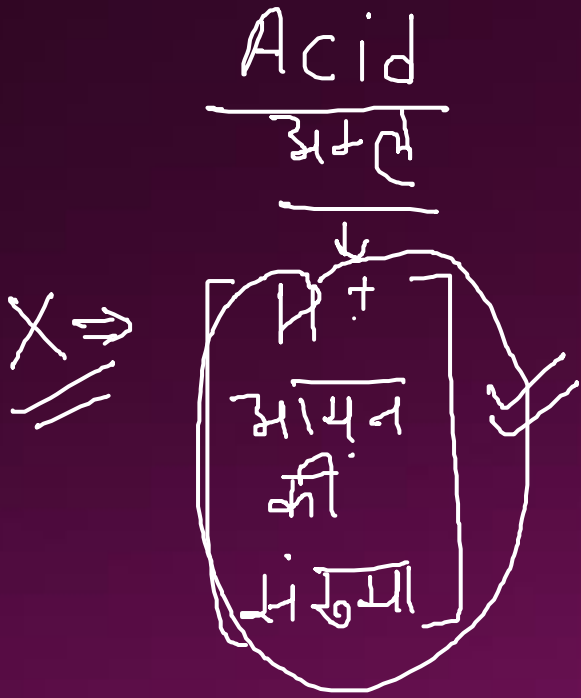 Acid
अम्ल
H⁺
X ⇒ आयन
की
संख्या